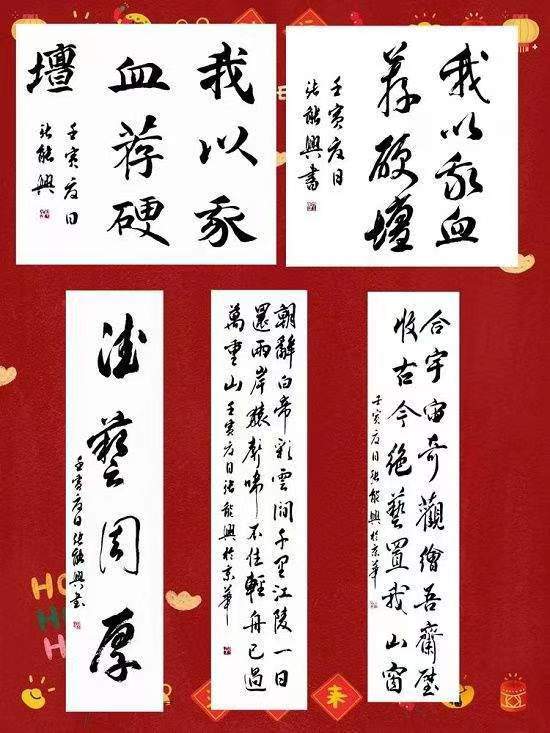 我以我
血荐硬
壇
壬寅夏日
张能興
我以我血
荐硬壇
壬寅夏日
张能興書
德藝周厚
壬寅夏日张能興書
朝辭白帝彩雲間千里江陵一日
還兩岸猿聲啼不住輕舟已過
萬重山 壬寅夏日张能興於京華
合宇宙奇觀繪吾齋壁
收古今絕藝置我山窗
壬寅夏日张能興於京華
HO
H
H
来